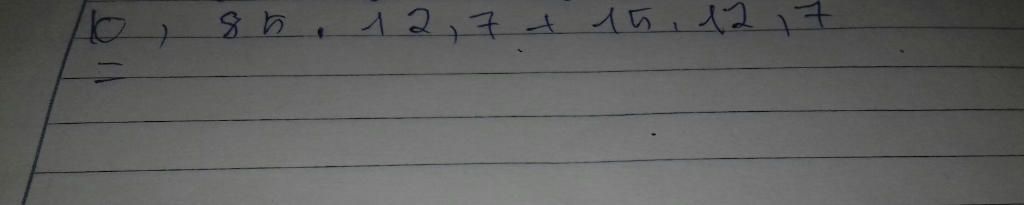 b, 85 . 12,7 + 15 . 12,7
=